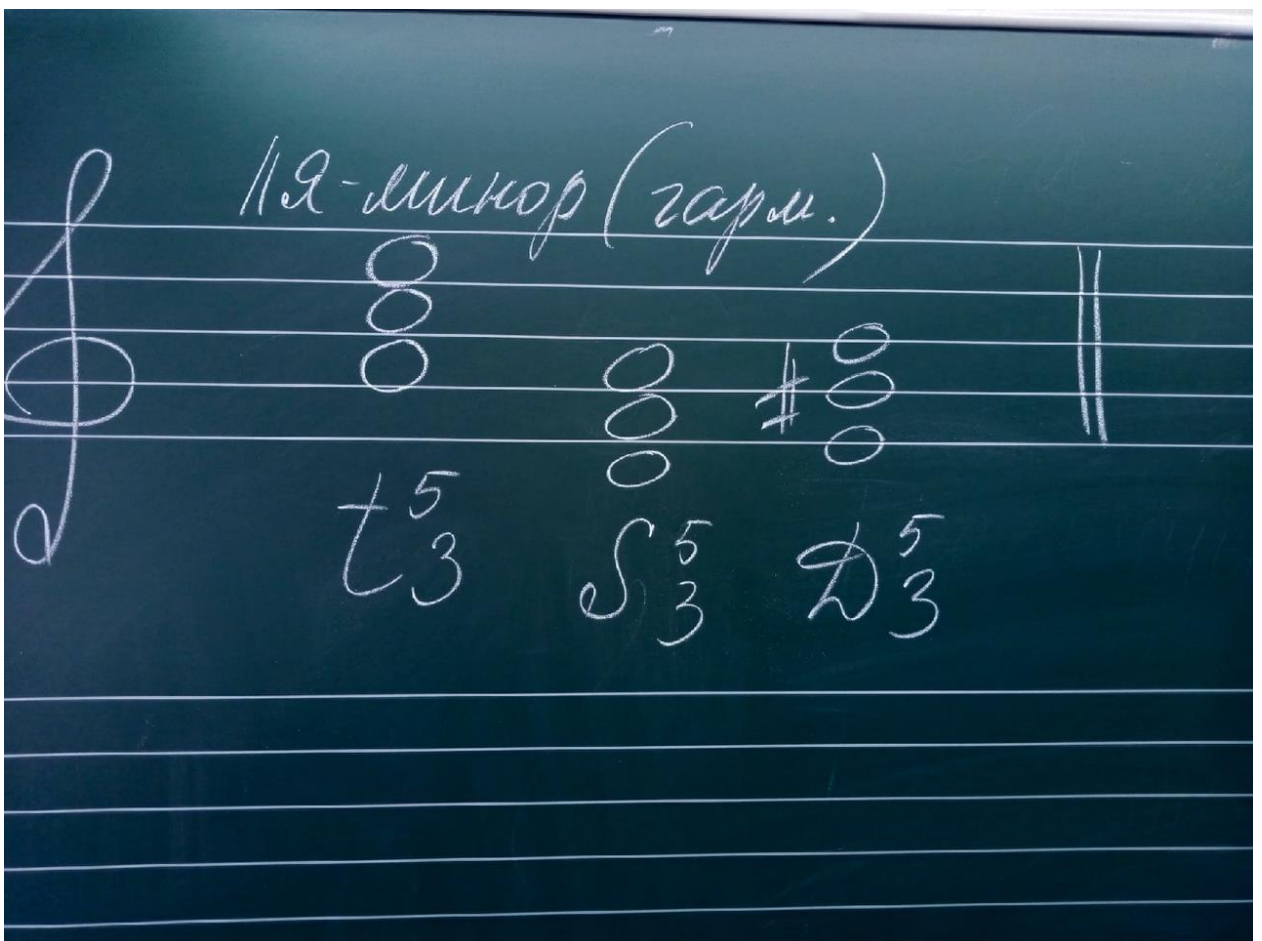 ля-минор (гарм.)
t 5 3 S 5 3 D 5 3